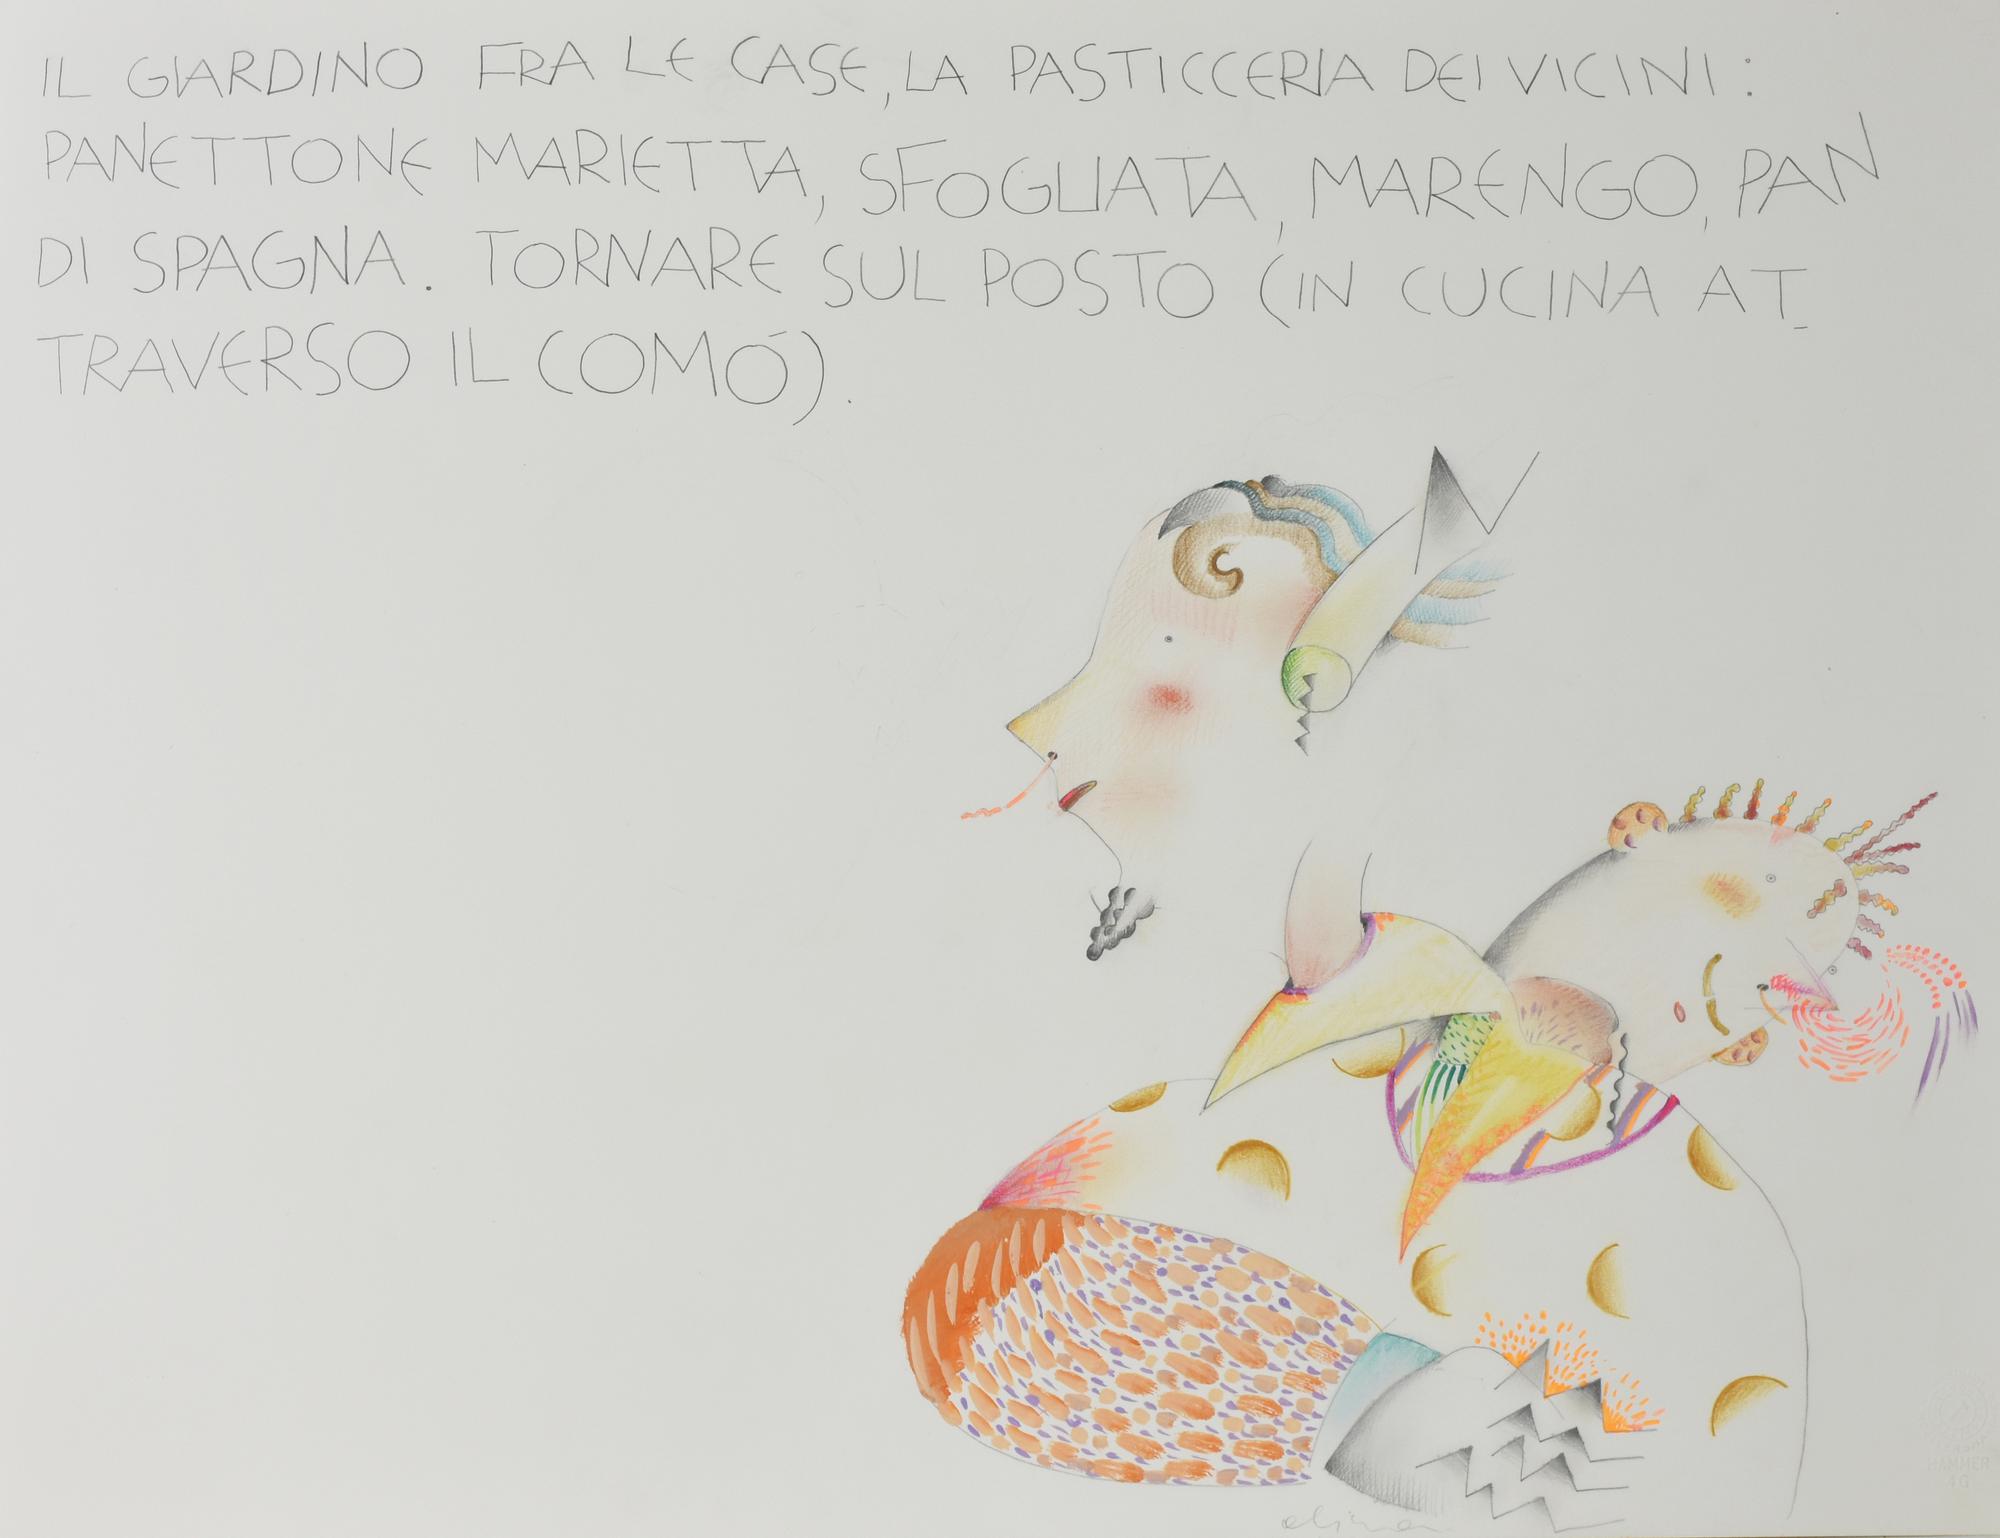 IL GIARDINO FRA LE CASE, LA PASTICCERIA DEI VICINI:
PANETTONE MARIETTA, SFOGLIATA, MARENGO, PAN
DI SPAGNA. TORNARE SUL POSTO (IN CUCINA AT
TRAVERSO IL COMÓ).
HAMMER
4 G